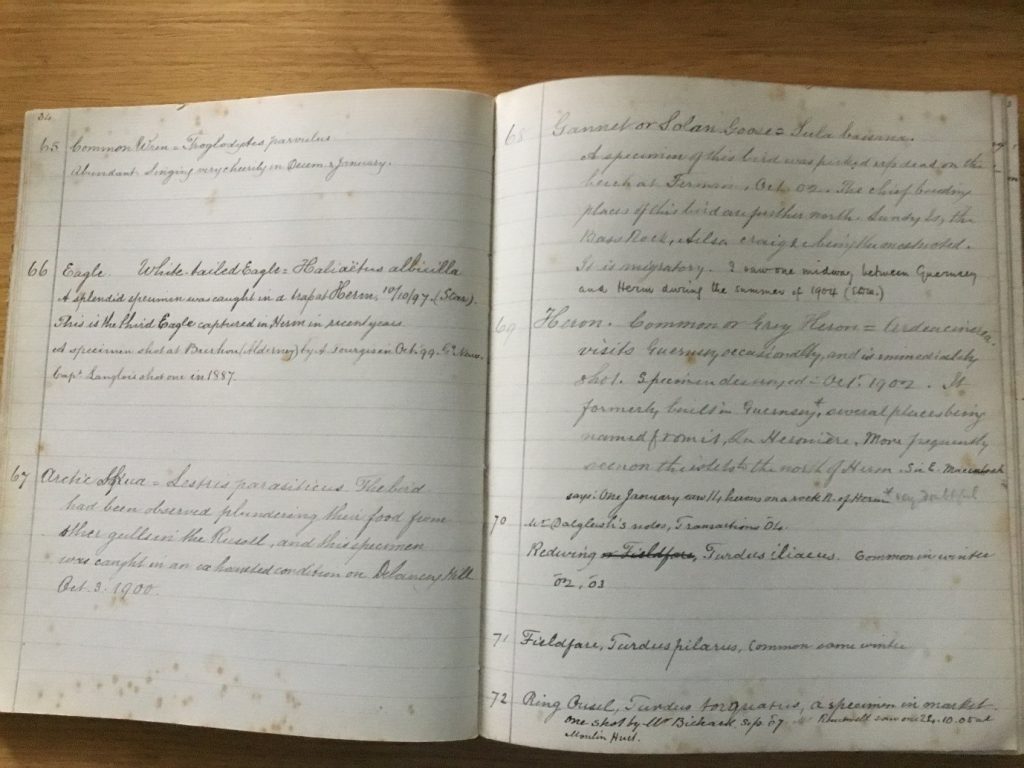 34
65 Common Wren = Troglodytes parvulus
Abundant. Singing very cheerily in Decem. & January.
66 Eagle. White-tailed Eagle = Haliaëtus albicilla
A splendid specimen was caught in a trap at Herm, 10/10/97. (Star).
This is the third Eagle captured in Herm in recent years.
A specimen shot at Burhou (Alderney) by A. in Oct. 99.
Capt. Langlois shot one in 1887.
67 Arctic Skua = Lestris parasiticus. The bird
had been observed plundering their food from
other gulls in the Russell, and this specimen
was caught in an exhausted condition on Delancey Hill
Oct. 3. 1900.
68 Gannet or Solan Goose = Sula bassana.
A specimen of this bird was picked up dead on the
beach at Fermain, Oct. 02. The chief breeding
places of this bird are further north. Lundy Is, the
Bass Rock, Ailsa craig &c being the most noted.
It is migratory. I saw one midway between Guernsey
and Herm during the summer of 1904
69 Heron. Common or Grey Heron = Ardea cinerea.
visits Guernsey occasionally, and is immediately
shot. Specimen destroyed = Oct. 1902. It
formerly built in Guernsey+, several places being
named from it, La Heronière. More frequently
seen on the islets to the north of Herm. Sir E. Macculloch
says: One January saw 14 herons on a rock N. of Herm + very doubtful
70 Mr Dalgleish's notes, Transactions 04.
Redwing or Fieldfare, Turdus iliacus. Common in winter
02, 03
71 Fieldfare, Turdus pilarus, Common same winter
72 Ring Ousel, Turdus torquatus, a specimen in market.
One shot by Mr Bichard Sep. 07 saw one 24.10.05 at
Moulin Huet.